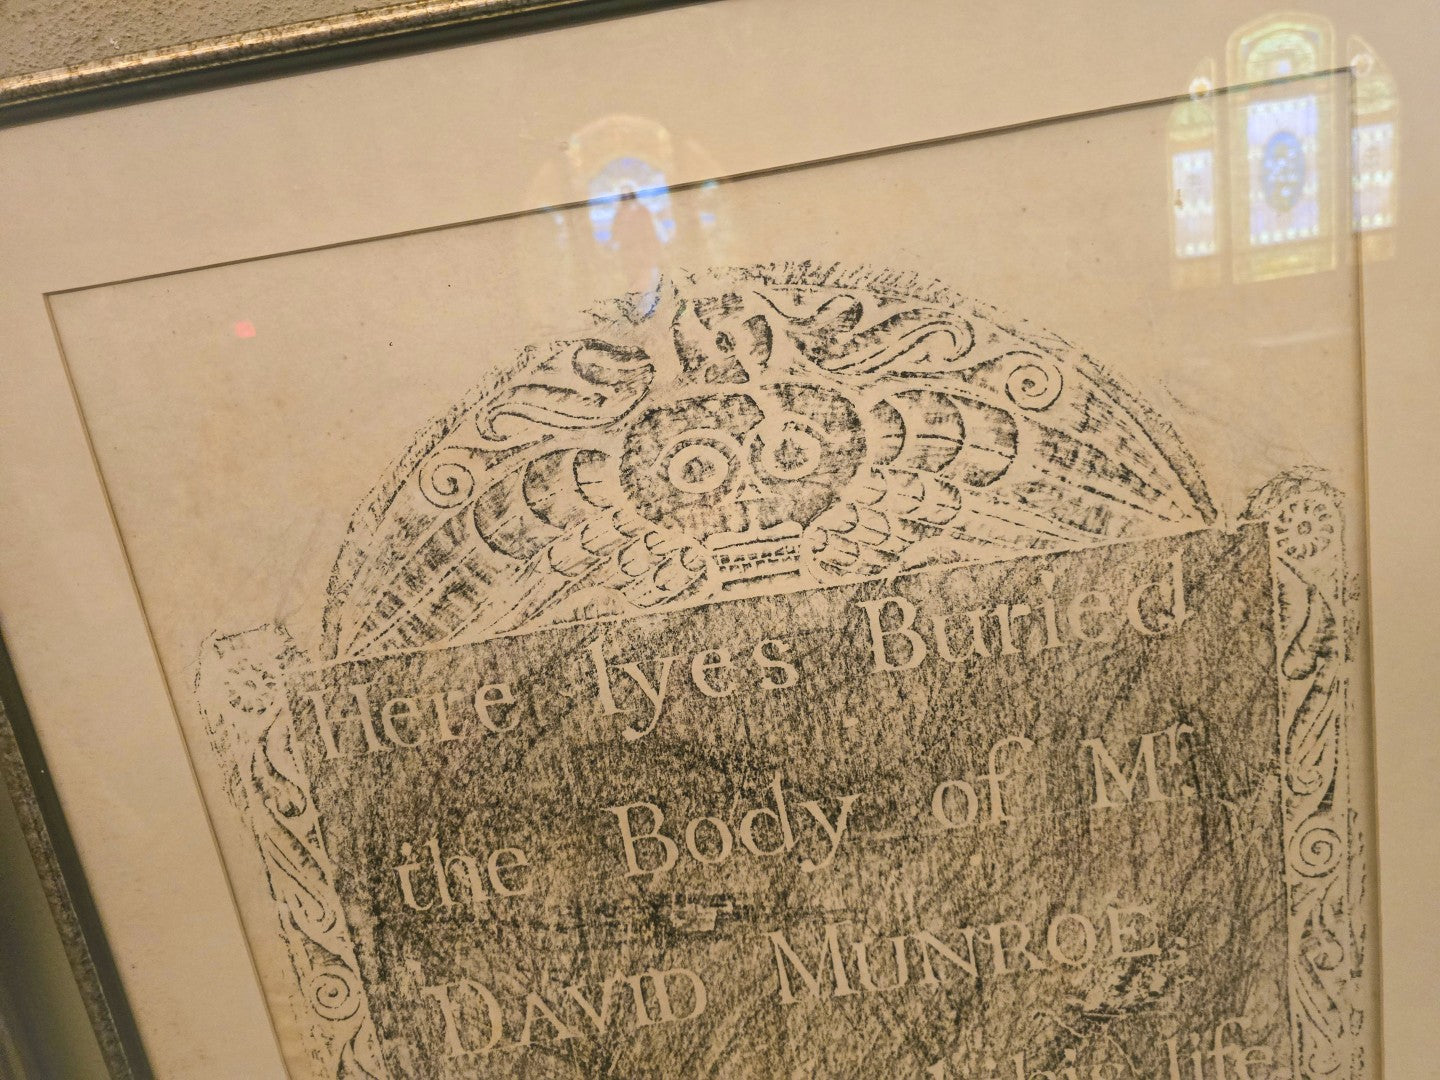 Here lyes Buried
the Body of Mr.
DAVID MUNROE,
his life